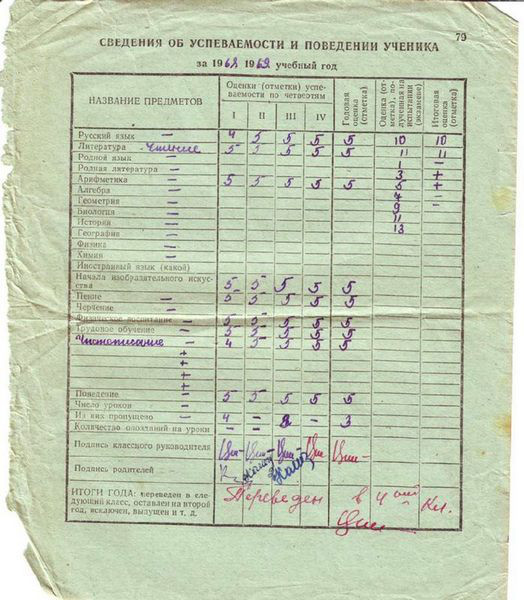 79
СВЕДЕНИЯ ОБ УСПЕВАЕМОСТИ И ПОВЕДЕНИИ УЧЕНИКА
за 1968 1969 учебный год
НАЗВАНИЕ ПРЕДМЕТОВ
Оценки (отметки) успеваемости по четвертям
I II III IV
Годовая оценка (отметка)
Оценка (отметка), полученная на испытании (экзамене)
Итоговая оценка (отметка)
Русский язык — 4 5 5 5 5 10 10
Литература Чтение 5 5 5 5 5 11 11
Родной язык — 1 —
Родная литература — 3 +
Арифметика — 5 5 5 5 5 5 +
Алгебра — 7 —
Геометрия — 9
Биология — 11
История — 13
География —
Физика —
Химия —
Иностранный язык (какой)
Начала изобразительного искусства 5 5 5 5 5
Пение — 5 5 5 5 5
Черчение —
Физическое воспитание — 5 5 5 5 5
Трудовое обучение — 5 5 5 5 5
Чистописание 4 5 5 5 5
Поведение — 5 5 5 5 5
Число уроков —
Из них пропущено — 4 — 2 — 3
Количество опозданий на уроки — — — —
Подпись классного руководителя
Подпись родителей —
ИТОГИ ГОДА: переведен в следующий класс, оставлен на второй год, исключен, выпущен и т. д.
Переведен в 4 ый Кл.